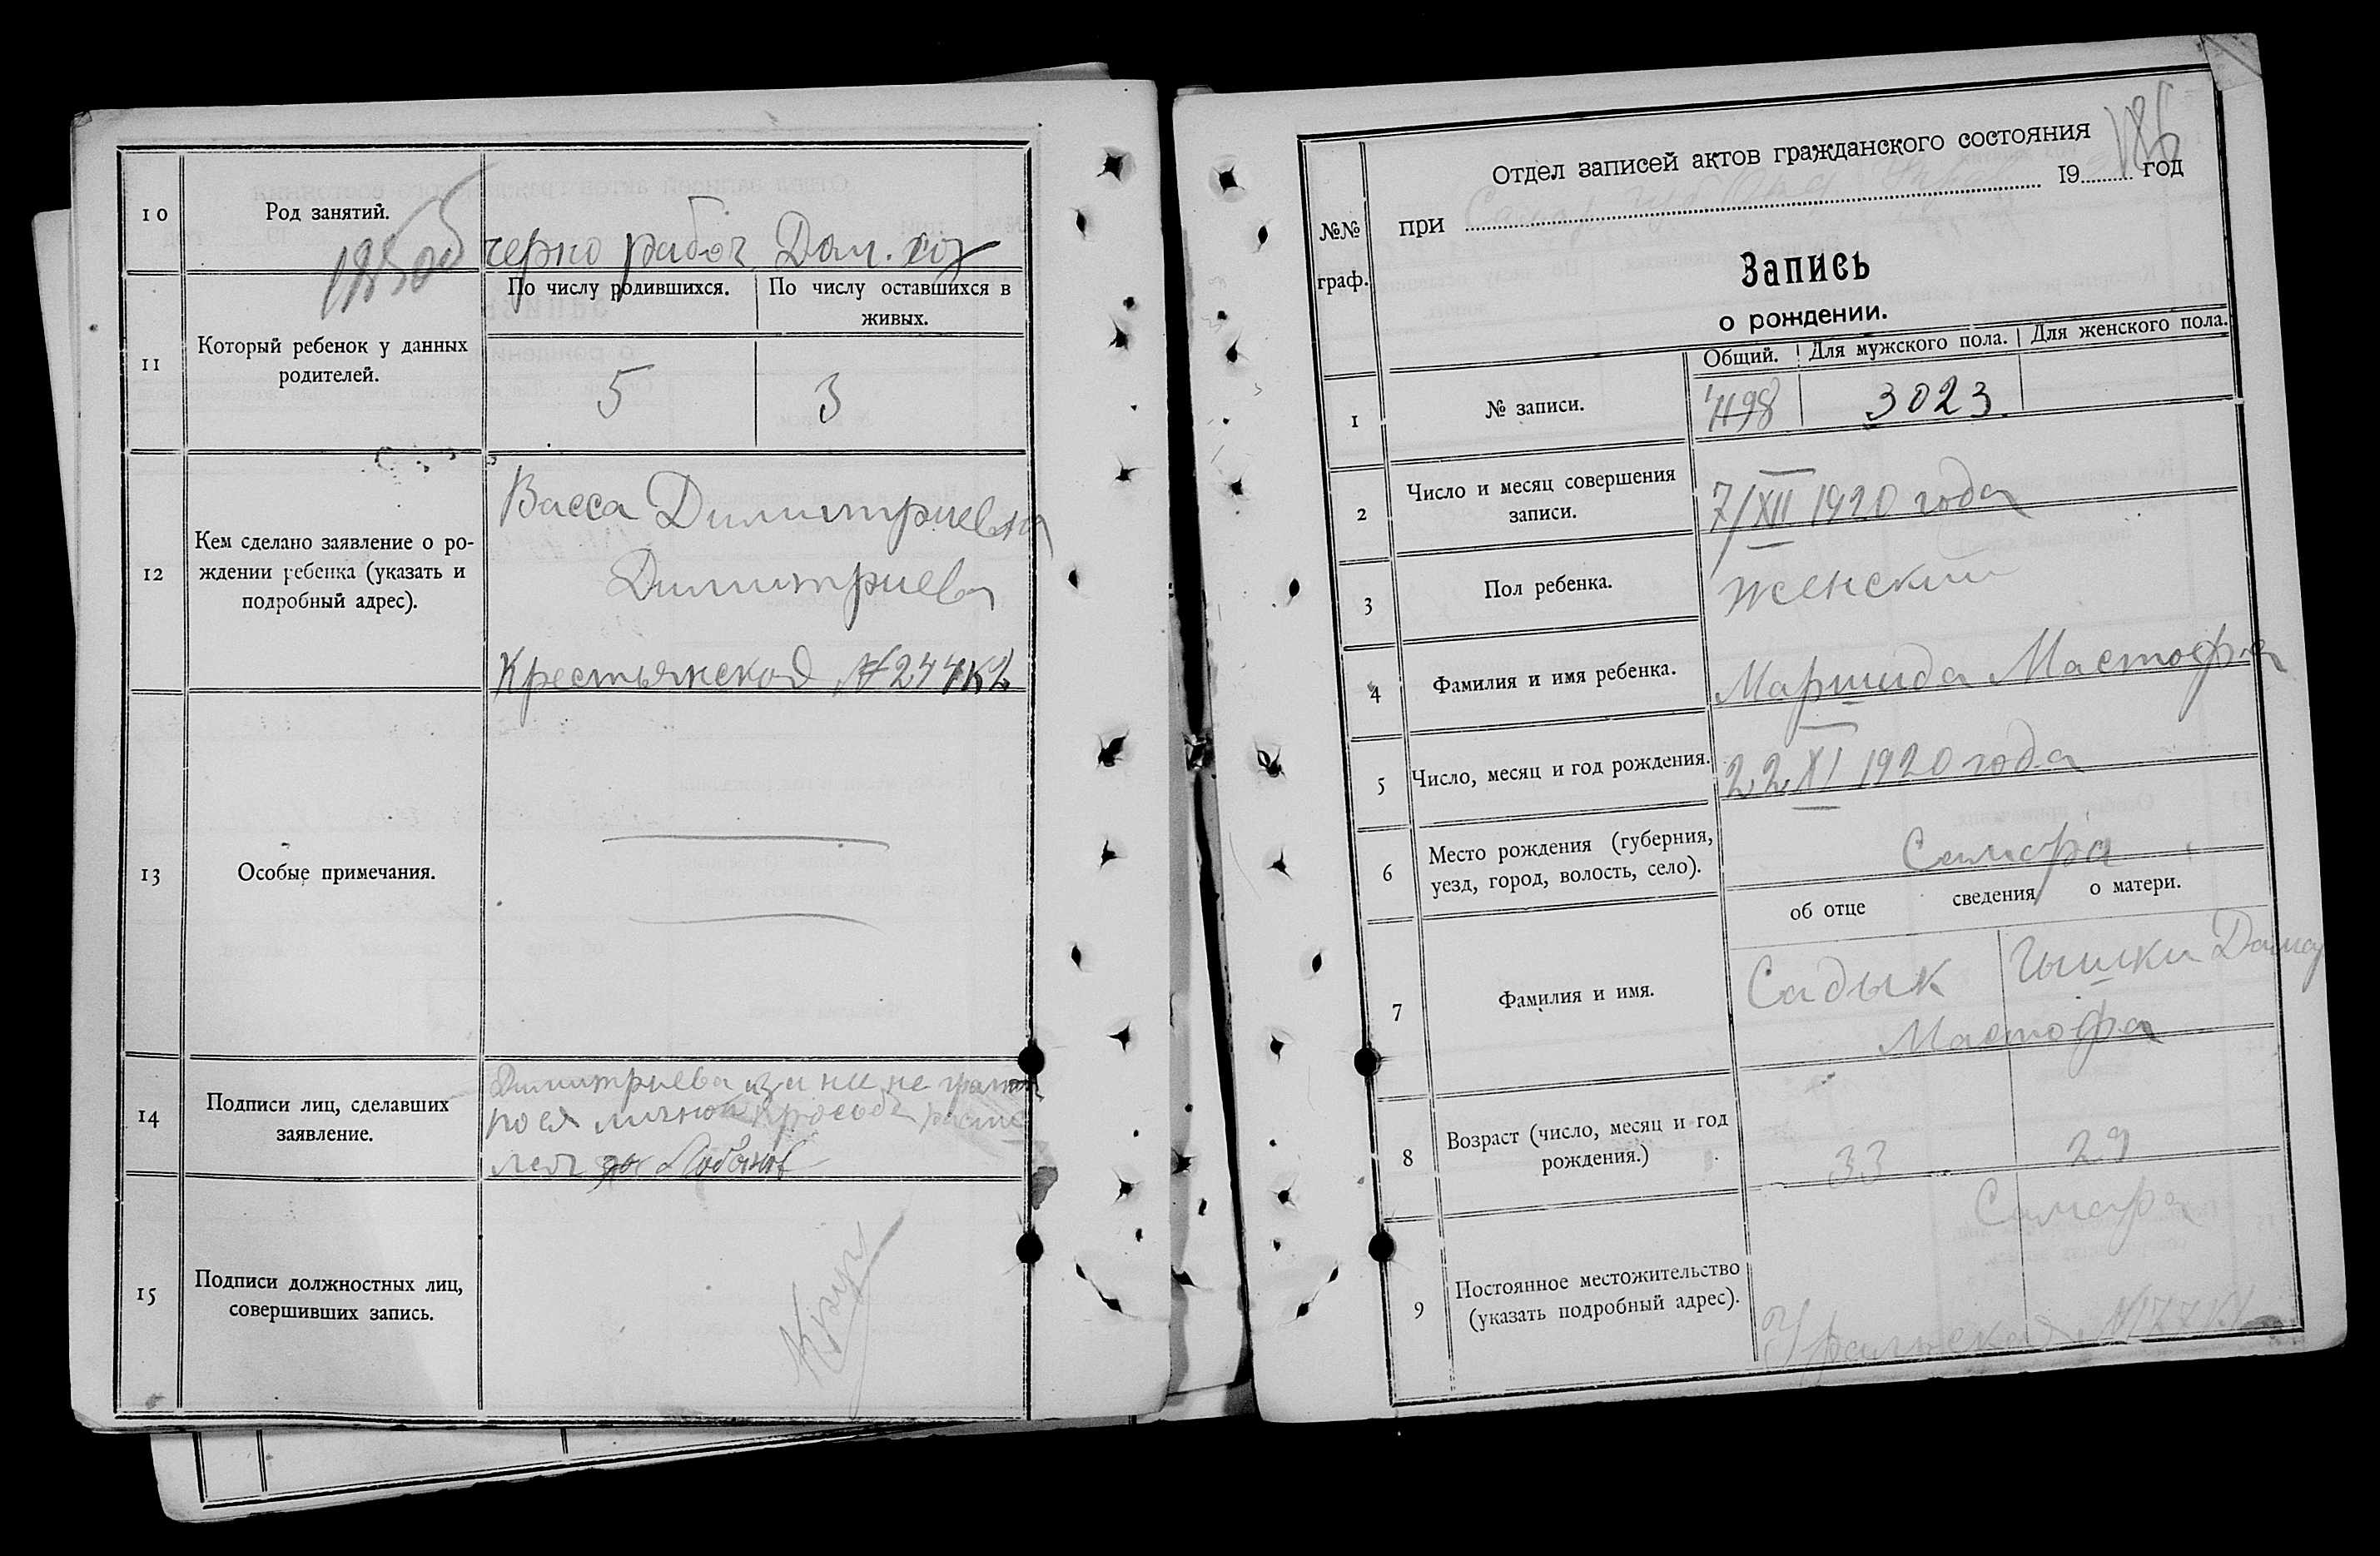 10
Род занятий.
черно рабоч Дом. хоз
11
Который ребенок у данных
родителей.
По числу родившихся.
По числу оставшихся в
живых.
5
3
12
Кем сделано заявление о ро-
ждении ребенка (указать и
подробный адрес).
Васса Димитриевна
Димитриева
Крестьянская №244 к2
13
Особые примечания.
14
Подписи лиц, сделавших
заявление.
Димитриева
по ея личной просьбе
15
Подписи должностных лиц,
совершивших запись.
№№
граф.
Отдел записей актов гражданского состояния
при 19 год
Запись
о рождении.
Общий.
Для мужского пола.
Для женского пола.
1
№ записи.
3023.
2
Число и месяц совершения
записи.
7/XII 1920 года
3
Пол ребенка.
женский
4
Фамилия и имя ребенка.
Маршида Мастофа
5
Число, месяц и год рождения.
22 XI 1920 года
6
Место рождения (губерния,
уезд, город, волость, село).
Самара
об отце
сведения
о матери.
7
Фамилия и имя.
Садык
Мастофа
8
Возраст (число, месяц и год
рождения.)
33
29
9
Постоянное местожительство
(указать подробный адрес).
Самара
Уральская